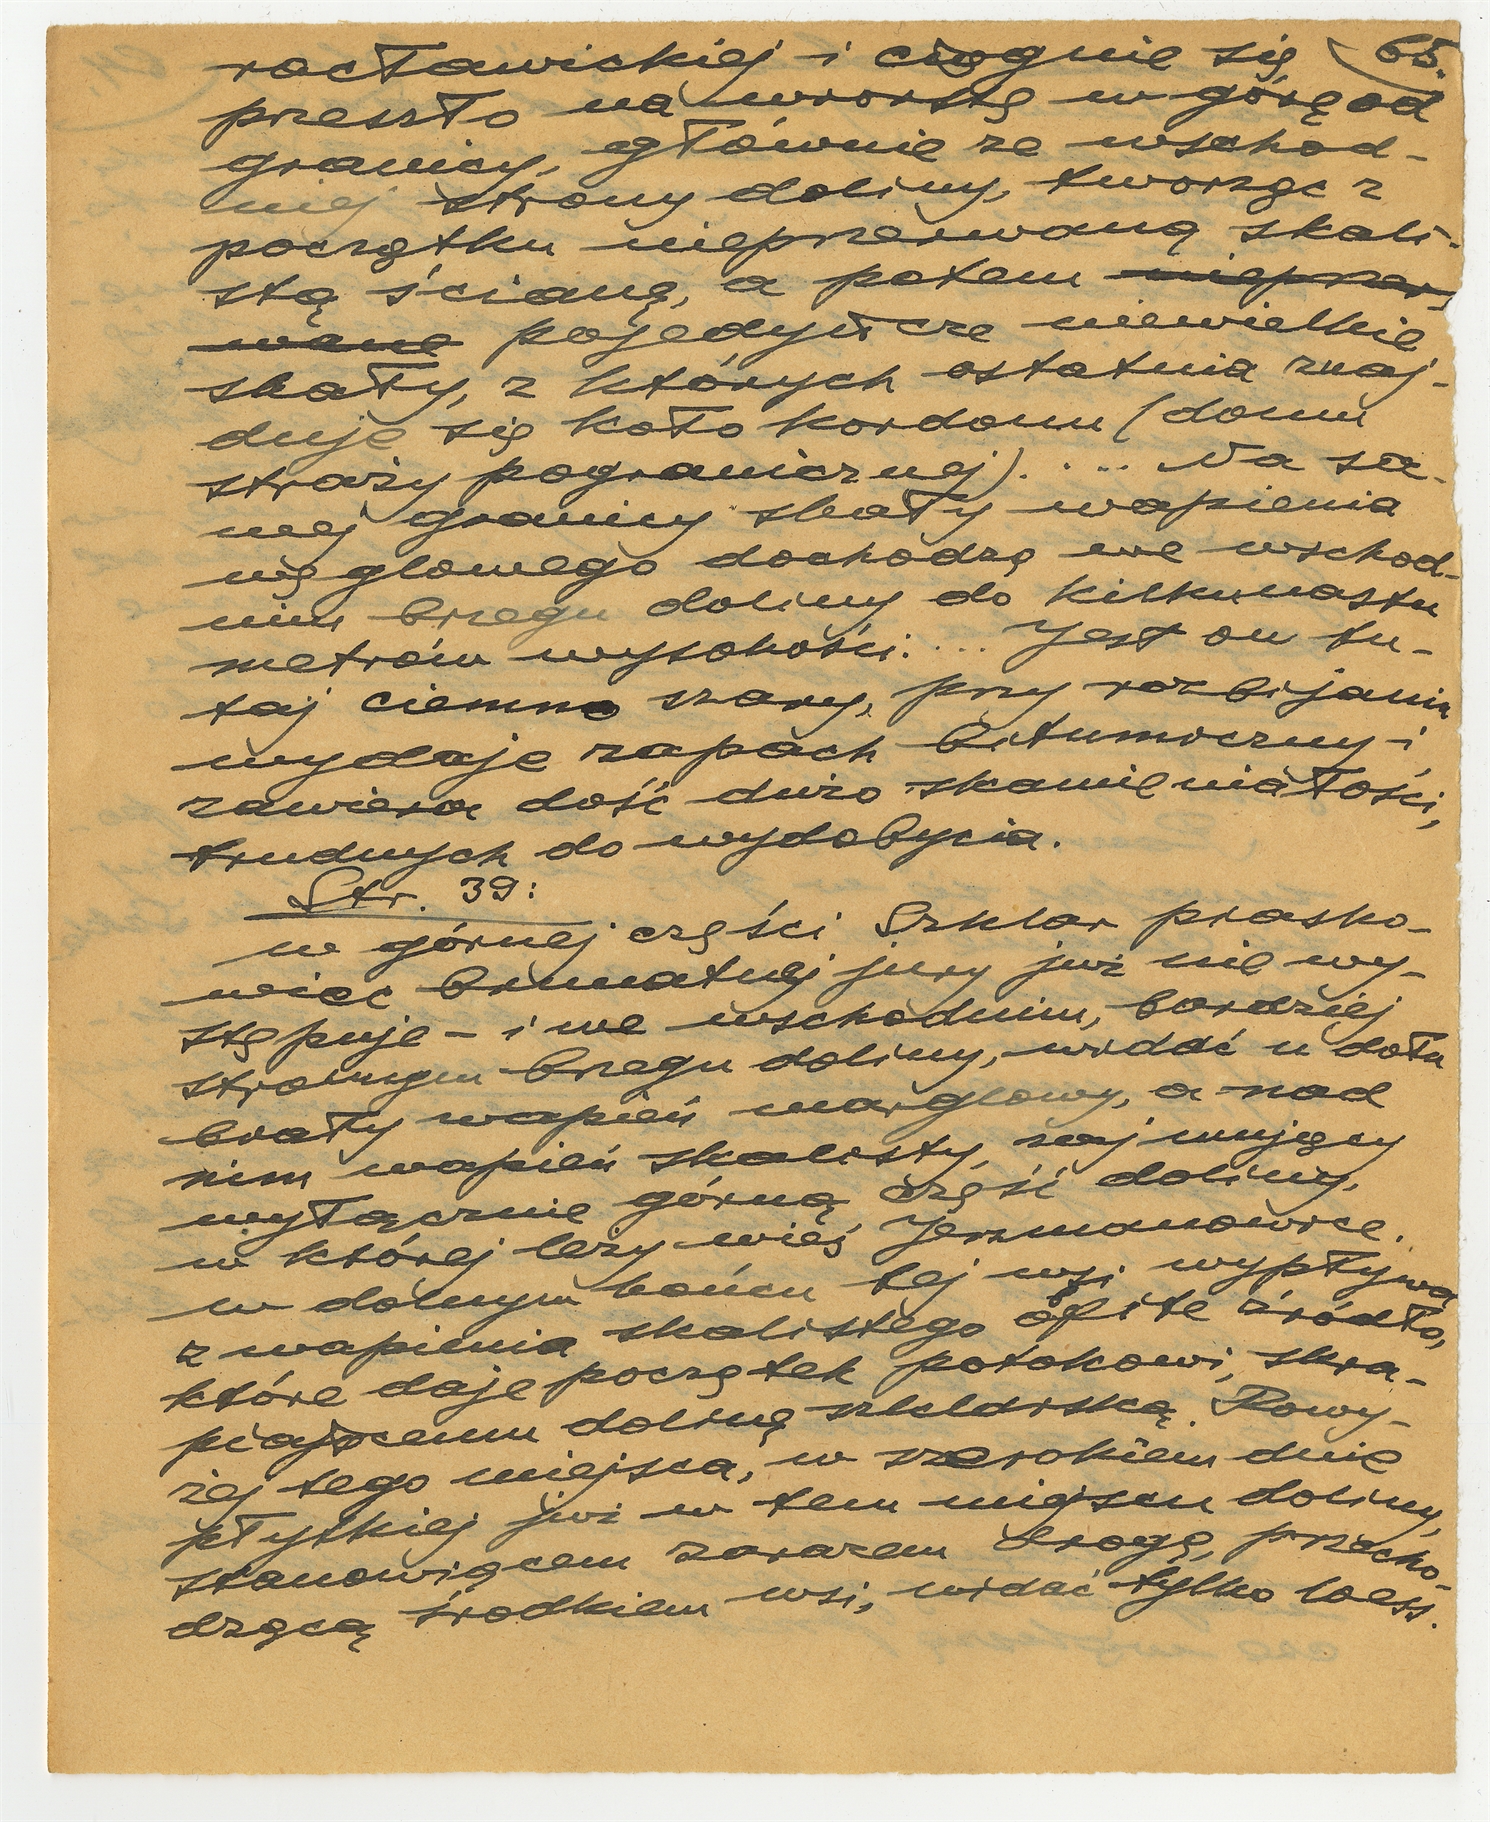 racławickiej i ciągnie się 65.
przeszło na wiorstę w górę od
granicy, głównie ze wschod-
niej strony doliny, tworząc z
początku nieprzerwaną skali-
stą ścianę, a potem nieprzer-
wane pojedyńcze niewielkie
skały, z których ostatnia znaj-
duje się koło kordonu (domu
straży pogranicznej). .... Na sa-
mej granicy skały wapienia
węglowego dochodzą we wschod-
nim brzegu doliny do kilkunastu
metrów wysokości. ... Jest on tu-
taj ciemno szary, przy rozbijaniu
wydaje zapach bitumiczny i
zawiera dość dużo skamieniałości,
trudnych do wydobycia.
Str. 39:
w górnej części Szklar piasko-
wiec brunatnej jury już nie wy-
stępuje - i we wschodnim, bardziej
stromym brzegu doliny, widać u dołu
biały wapień marglowy, a nad
nim wapień skalisty, zajmujący
wyłącznie górną część doliny,
w której leży wieś Jerzmanowice.
w dolnym końcu tej wsi wypływa
z wapienia skalistego obfite źródło,
które daje początek potokowi, skra-
piającemu dolinę szklarską. Powy-
żej tego miejsca, w szerokiem dnie
płytkiej już w tem miejscu doliny,
stanowiącem zarazem drogę, przecho-
dzącą środkiem wsi, widać tylko loess.